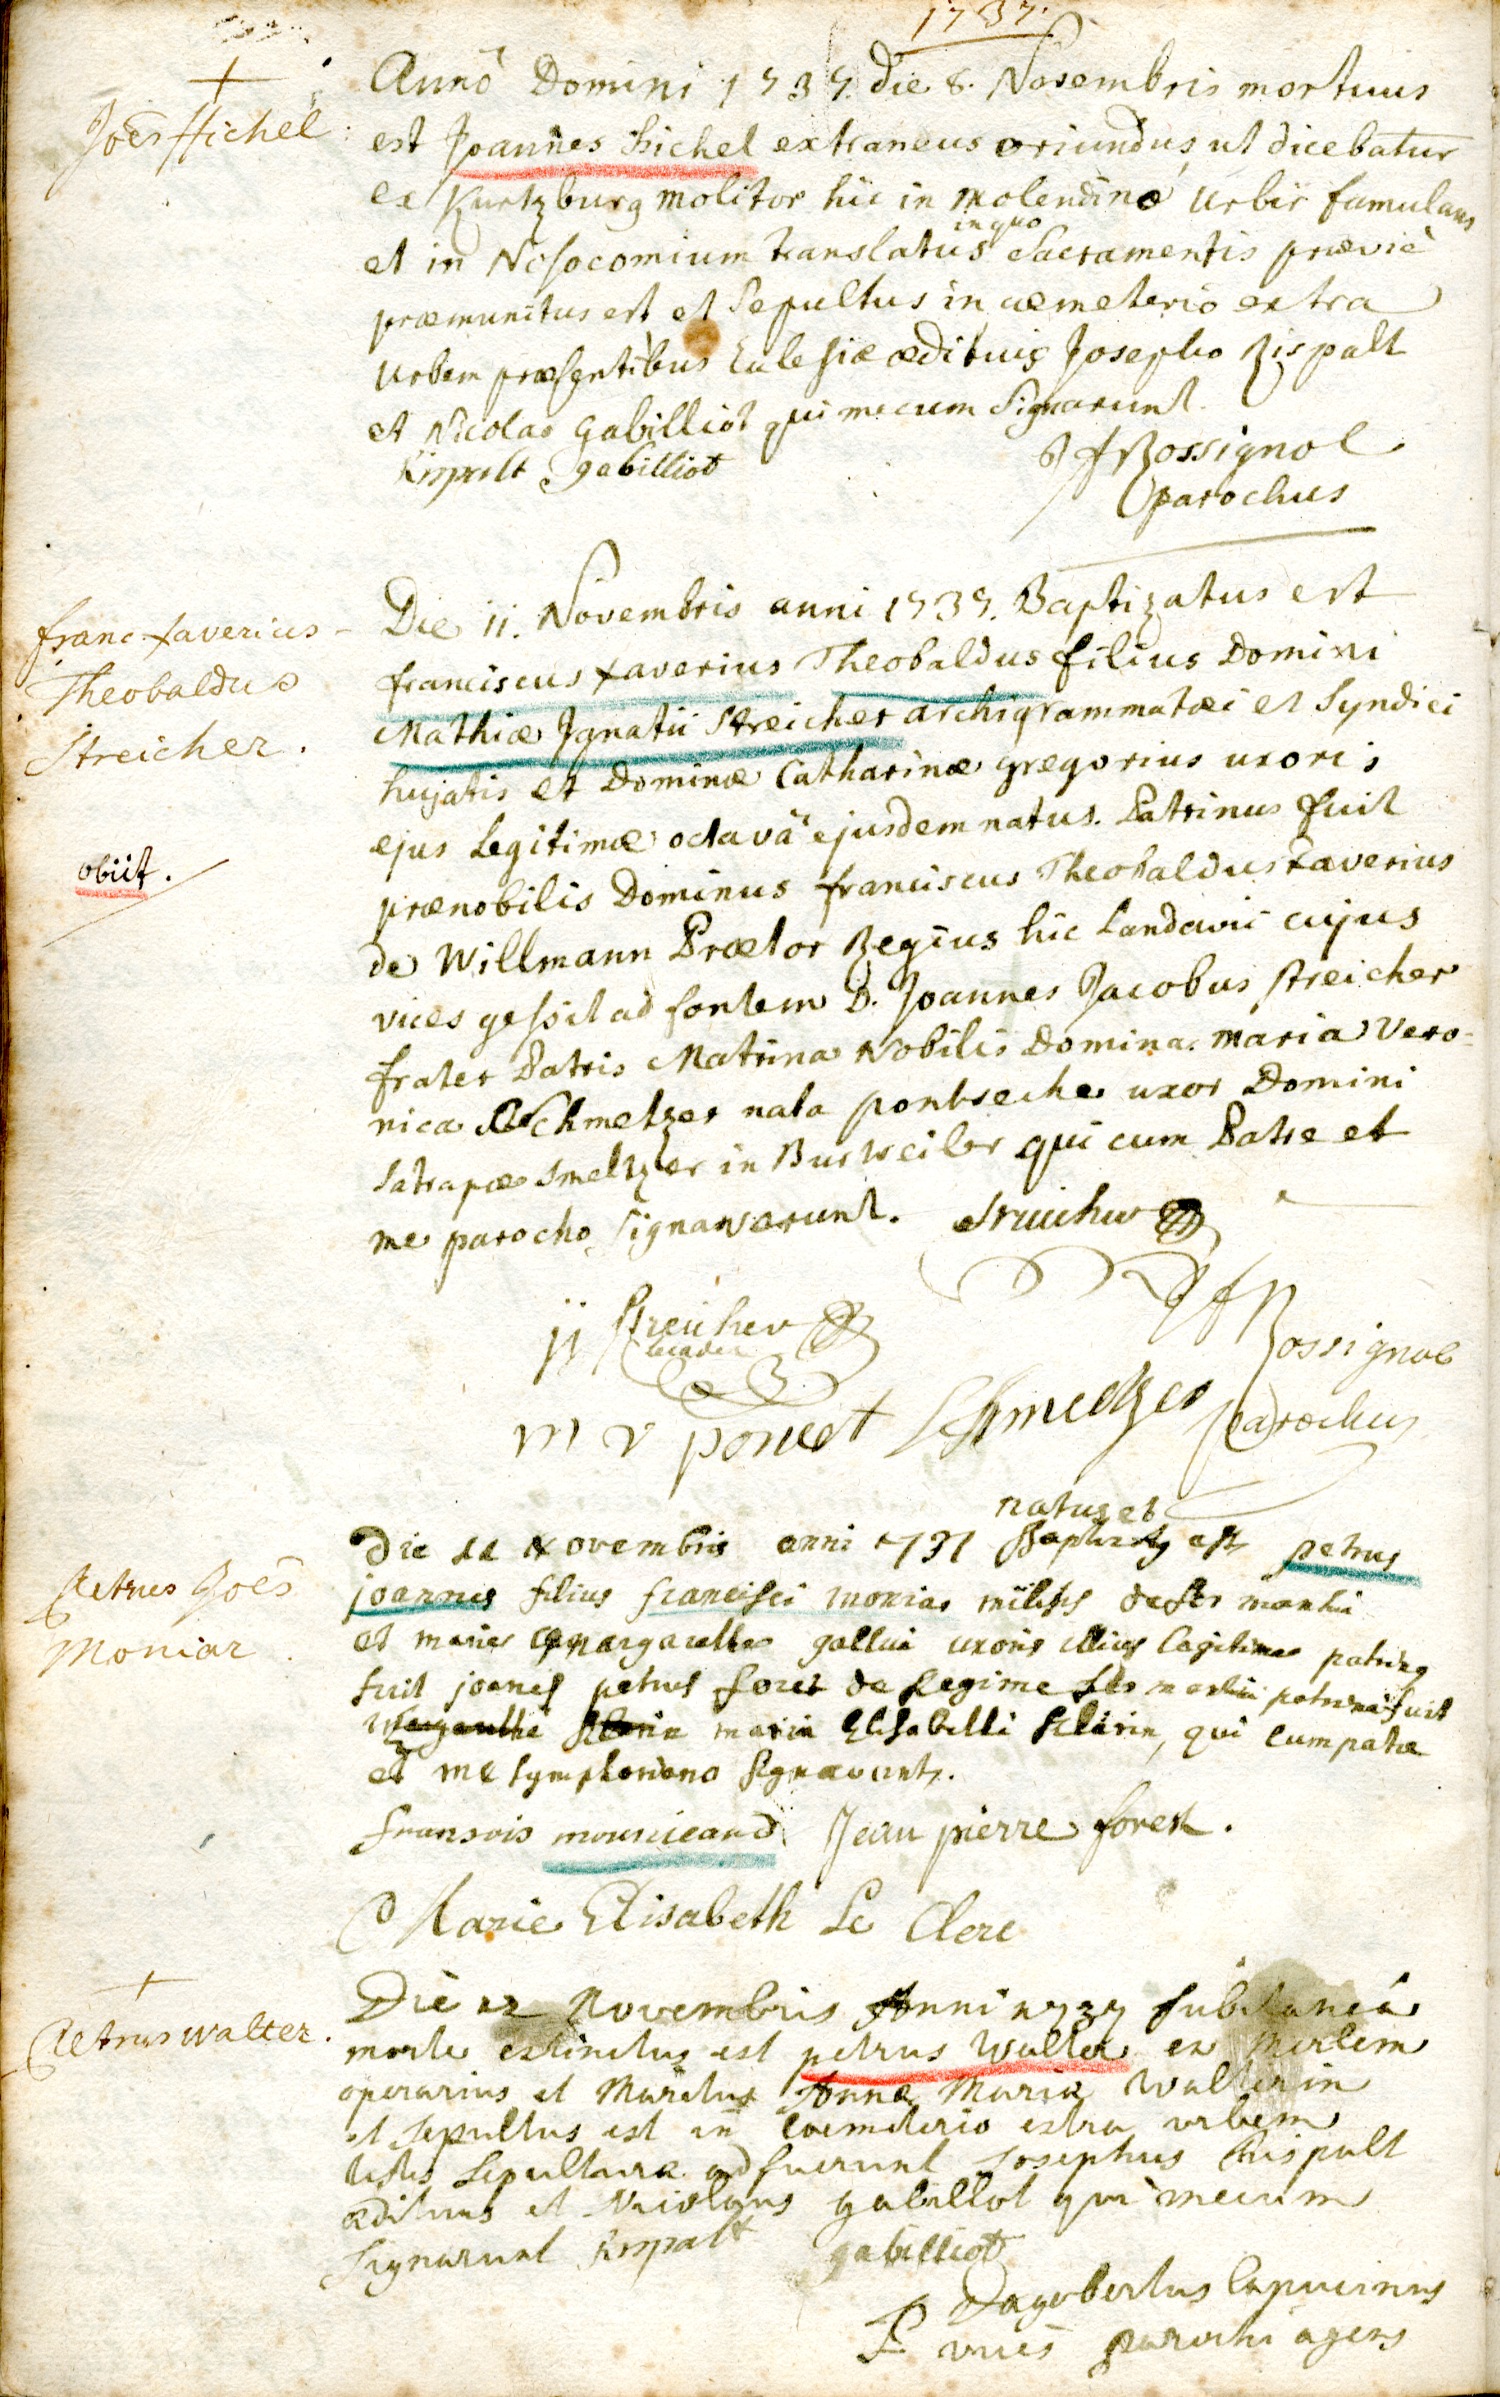 1737.
Joẽs Hichel
Anno Domini 1737. die 8. Novembris mortuus
est Joannes Hichel extraneus oriundus, ut dicebatur
ex Kurtzburg molitor hic in molendino Urbis famulans
et in Nosocomium translatus in quo Sacramentis prævie
præmunitus est et Sepultus in cæmeterio extra
Urbem præsentibus Ecclesiæ ædituis Josepho Rispalt
et Nicolao Gabilliot qui mecum Signarunt.
Rispalt gabilliot
J f Rossignol
parochus
franc. xaverius
Theobaldus
Streicher.
obiit.
Die 11. Novembris anni 1737. Baptizatus est
franciscus xaverius Theobaldus filius Domini
Mathiæ Ignatii Streicher archigrammatæi et Syndici
hujatis et Dominæ Catharinæ gregorius uxoris
ejus Legitimæ octavâ ejusdem natus. Patrinus fuit
prænobilis Dominus franciscus Theobaldus Xaverius
de Willmann Prætor Regius hic Landavii cujus
vices gessit ad fontem D. Joannes Jacobus Streicher
frater Patris Matrina Nobilis Domina maria Vero=
nica Schmeltzer nata pontseche uxor Domini
Satrapæ Smeltzer in Burweiler qui cum Patre et
me parocho signaverunt. Streicher
jj Streicher
J f Rossignol
m v poncet Schmeltzer parochus
Petrus Joẽs
Moniar.
natus et
Die 11 Novembris anni 1737 Baptizatus est petrus
joannes filius francisci moniar militis
et mariæ margarethæ gallui uxoris illius Legitimæ patrinus
fuit joannes petrus foret de Regime patrina fuit
maria Elisabetha Klerin, qui cum patre
et me symphoriano signaverunt.
fransois mousneard Jean pierre foret.
Marie Elisabeth Le Clerc
Petrus walter.
Die 12 Novembris Anni 1737 subitaneâ
morte extinctus est petrus Walter ex Merlem
operarius et Maritus Annæ Mariæ Walterin
et sepultus est in Coemeterio extra urbem
testes Sepulturæ adfuerunt Josephus Rispalt
ædituus et Nicolaus gabilliot qui mecum
signarunt Rispalt gabilliot
P Dagobertus Capucinus
vices parochi agens